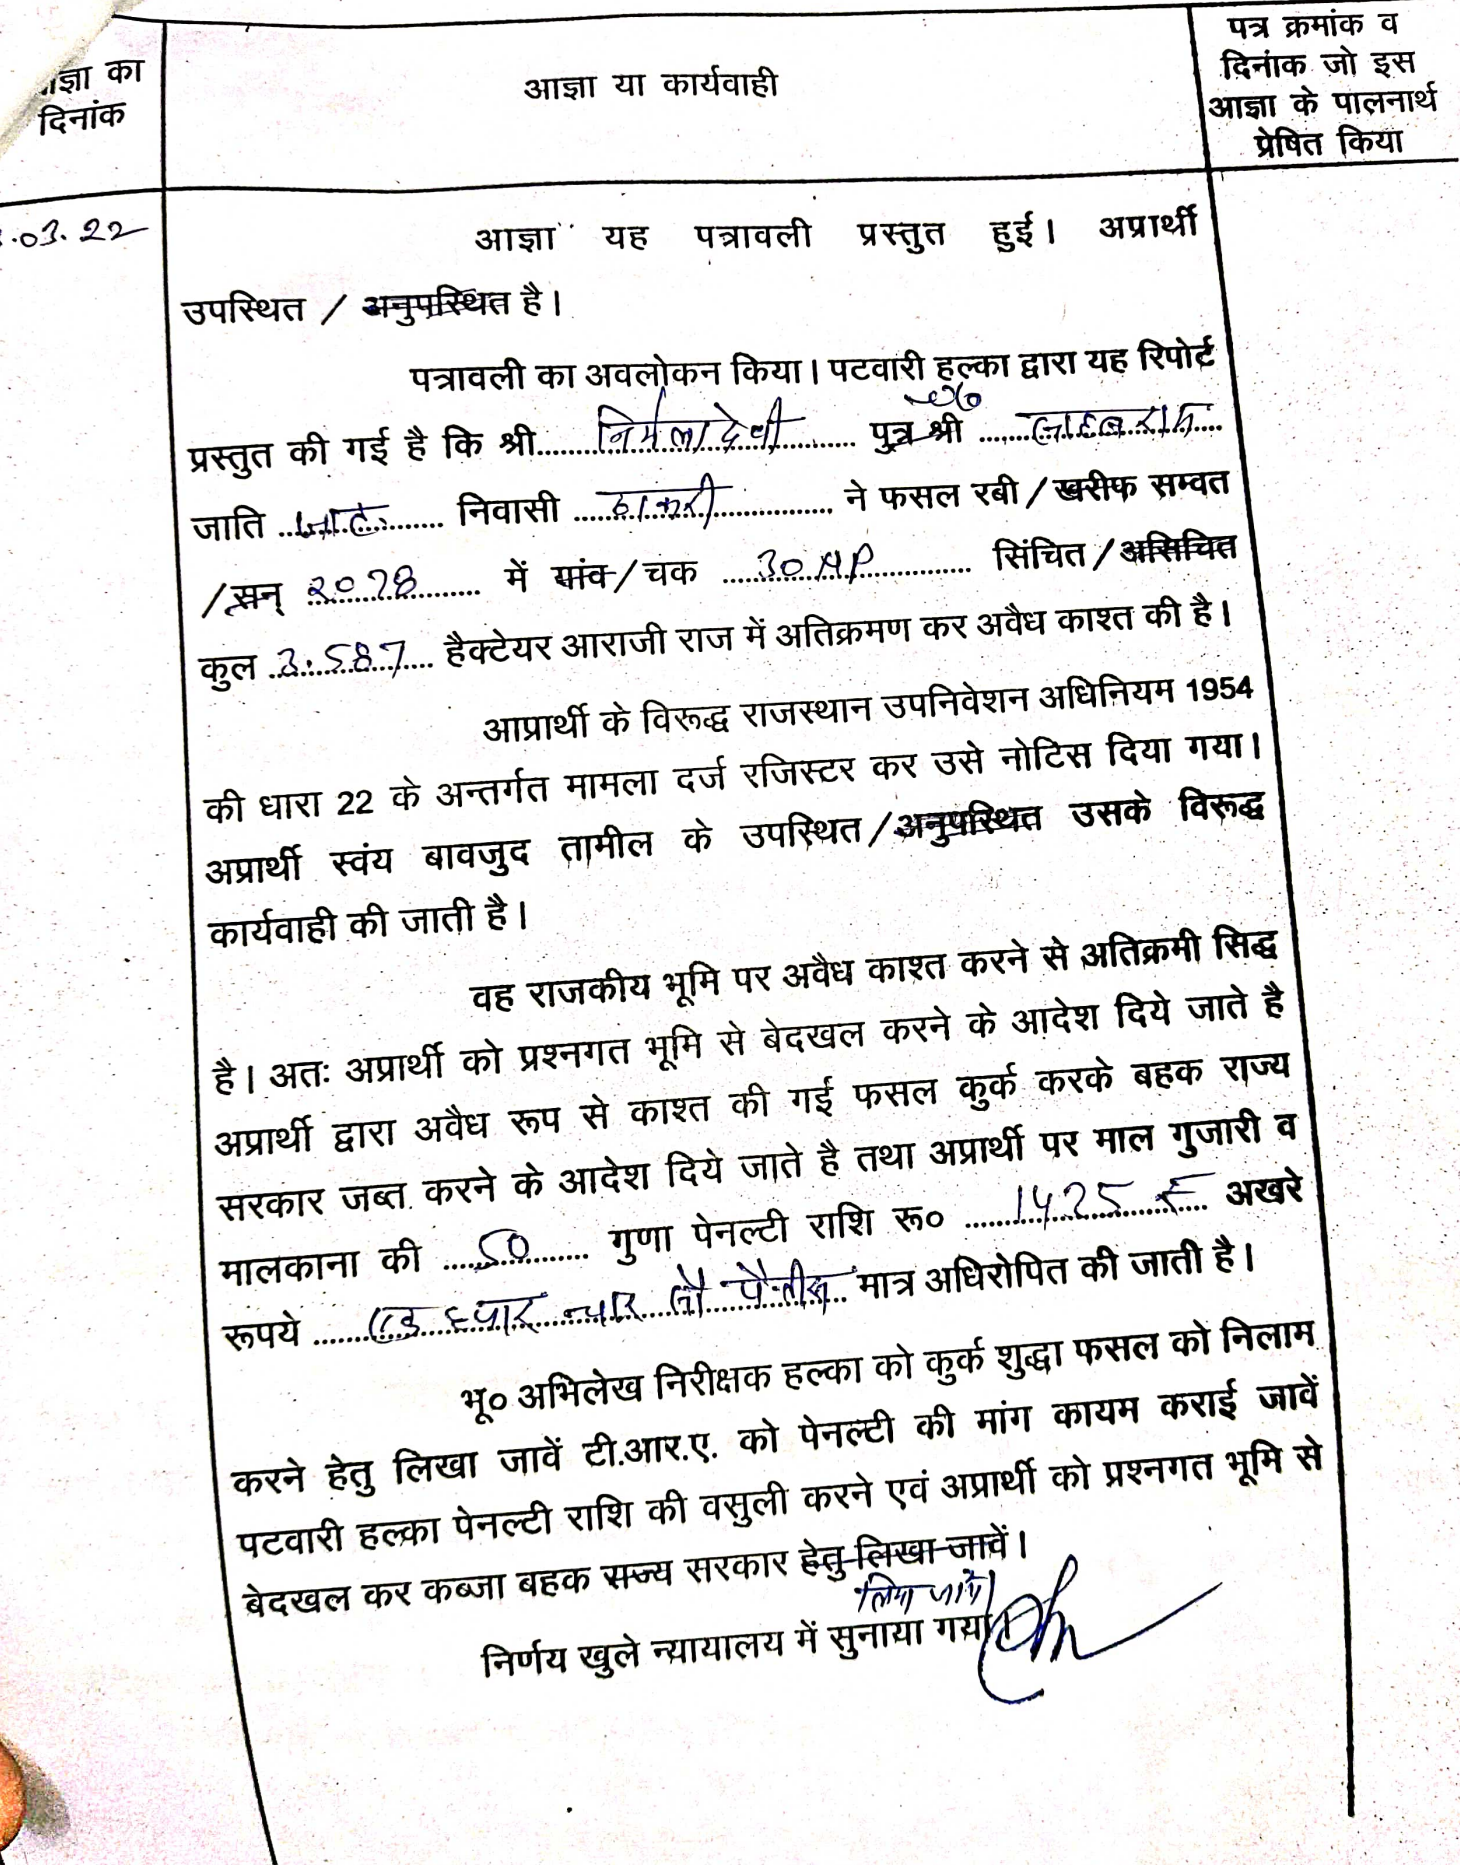 आज्ञा का
दिनांक
आज्ञा या कार्यवाही
पत्र क्रमांक व
दिनांक जो इस
आज्ञा के पालनार्थ
प्रेषित किया
.03.22
आज्ञा यह पत्रावली प्रस्तुत हुई। अप्रार्थी
उपस्थित / अनुपस्थित है।
पत्रावली का अवलोकन किया। पटवारी हल्का द्वारा यह रिपोर्ट
प्रस्तुत की गई है कि श्री निर्मला देवी पुत्र श्री
जाति जाट निवासी ने फसल रबी / खरीफ सम्वत
/ सन् 2078 में गांव / चक 30 AP सिंचित / असिचित
कुल 3.587 हैक्टेयर आराजी राज में अतिक्रमण कर अवैध काश्त की है।
आप्रार्थी के विरूद्ध राजस्थान उपनिवेशन अधिनियम 1954
की धारा 22 के अन्तर्गत मामला दर्ज रजिस्टर कर उसे नोटिस दिया गया।
अप्रार्थी स्वंय बावजुद तामील के उपस्थित / अनुपस्थित उसके विरूद्ध
कार्यवाही की जाती है।
वह राजकीय भूमि पर अवैध काश्त करने से अतिक्रमी सिद्ध
है। अतः अप्रार्थी को प्रश्नगत भूमि से बेदखल करने के आदेश दिये जाते है
अप्रार्थी द्वारा अवैध रूप से काश्त की गई फसल कुर्क करके बहक राज्य
सरकार जब्त करने के आदेश दिये जाते है तथा अप्रार्थी पर माल गुजारी व
मालकाना की 50 गुणा पेनल्टी राशि रू० अखरे
रूपये मात्र अधिरोपित की जाती है।
भू० अभिलेख निरीक्षक हल्का को कुर्क शुद्धा फसल को निलाम
करने हेतु लिखा जावें टी.आर.ए. को पेनल्टी की मांग कायम कराई जावें
पटवारी हल्का पेनल्टी राशि की वसुली करने एवं अप्रार्थी को प्रश्नगत भूमि से
बेदखल कर कब्जा बहक राज्य सरकार हेतु लिखा जावें।
लिया जावे
निर्णय खुले न्यायालय में सुनाया गया।